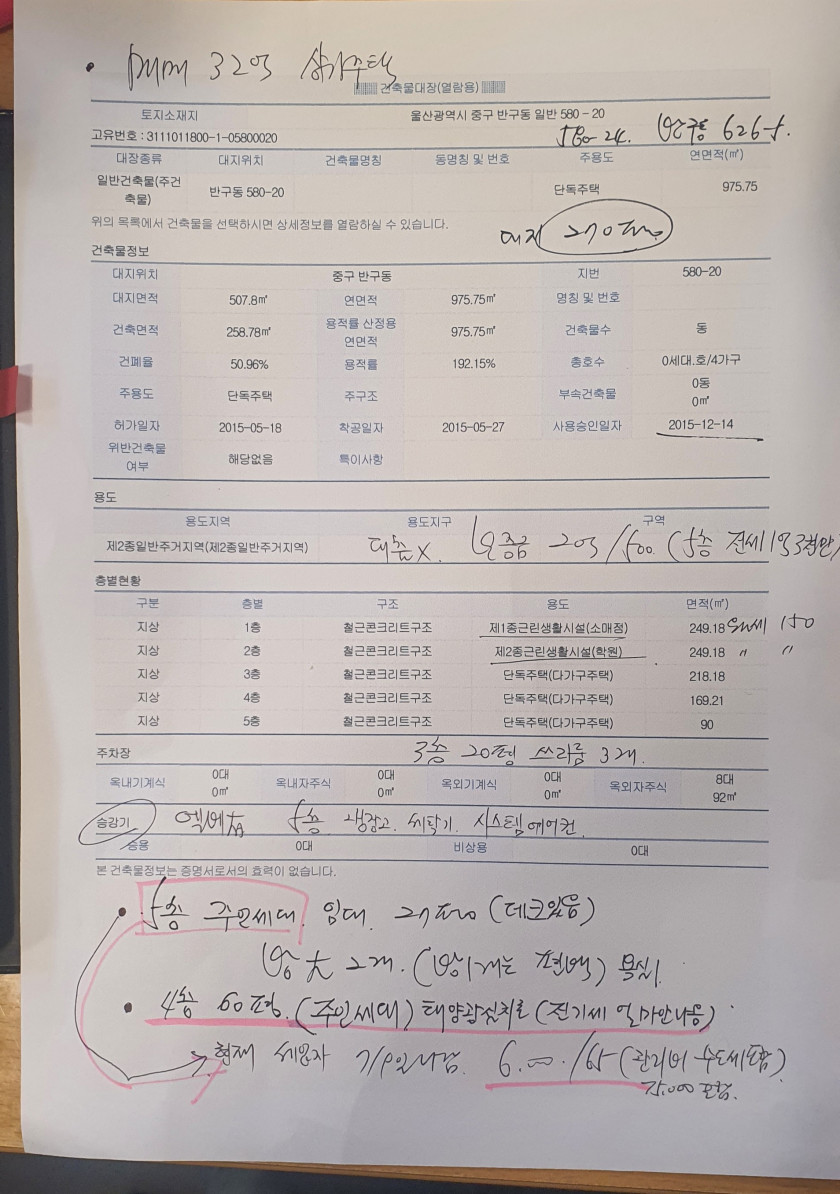 • 매매 32억 상가주택
건축물대장(열람용)
토지소재지 울산광역시 중구 반구동 일반 580 - 20
고유번호 : 3111011800-1-05800020 580-24.
대장종류 대지위치 건축물명칭 동명칭 및 번호 주용도 연면적(㎡)
일반건축물(주건축물) 반구동 580-20 단독주택 975.75
위의 목록에서 건축물을 선택하시면 상세정보를 열람하실 수 있습니다.
대지
건축물정보
대지위치 중구 반구동 지번 580-20
대지면적 507.8㎡ 연면적 975.75㎡ 명칭 및 번호
건축면적 258.78㎡ 용적률 산정용 연면적 975.75㎡ 건축물수 동
건폐율 50.96% 용적률 192.15% 총호수 0세대.호/4가구
주용도 단독주택 주구조 부속건축물 0동 0㎡
허가일자 2015-05-18 착공일자 2015-05-27 사용승인일자 2015-12-14
위반건축물 여부 해당없음 특이사항
용도
용도지역 용도지구 구역
제2종일반주거지역(제2종일반주거지역) 대출X. 보증금 2억/500. (5층 전세1억3천만)
층별현황
구분 층별 구조 용도 면적(㎡)
지상 1층 철근콘크리트구조 제1종근린생활시설(소매점) 249.18 월세 150
지상 2층 철근콘크리트구조 제2종근린생활시설(학원) 249.18 〃 〃
지상 3층 철근콘크리트구조 단독주택(다가구주택) 218.18
지상 4층 철근콘크리트구조 단독주택(다가구주택) 169.21
지상 5층 철근콘크리트구조 단독주택(다가구주택) 90
주차장 3층 20평 쓰리룸 3개.
옥내기계식 0대 0㎡ 옥내자주식 0대 0㎡ 옥외기계식 0대 0㎡ 옥외자주식 8대 92㎡
승강기 엘베有 5층 냉장고. 세탁기. 시스템에어컨
승용 0대 비상용 0대
본 건축물정보는 증명서로서의 효력이 없습니다.
• 5층 주인세대. 임대. 27평 (데크있음)
방 大 2개. 욕실1
• 4층 60평. (주인세대) 태양광설치로 (전기세 얼마안나옴)
현재 세입자 6.000./65 (관리비 수도세포함)
75,000 포함.